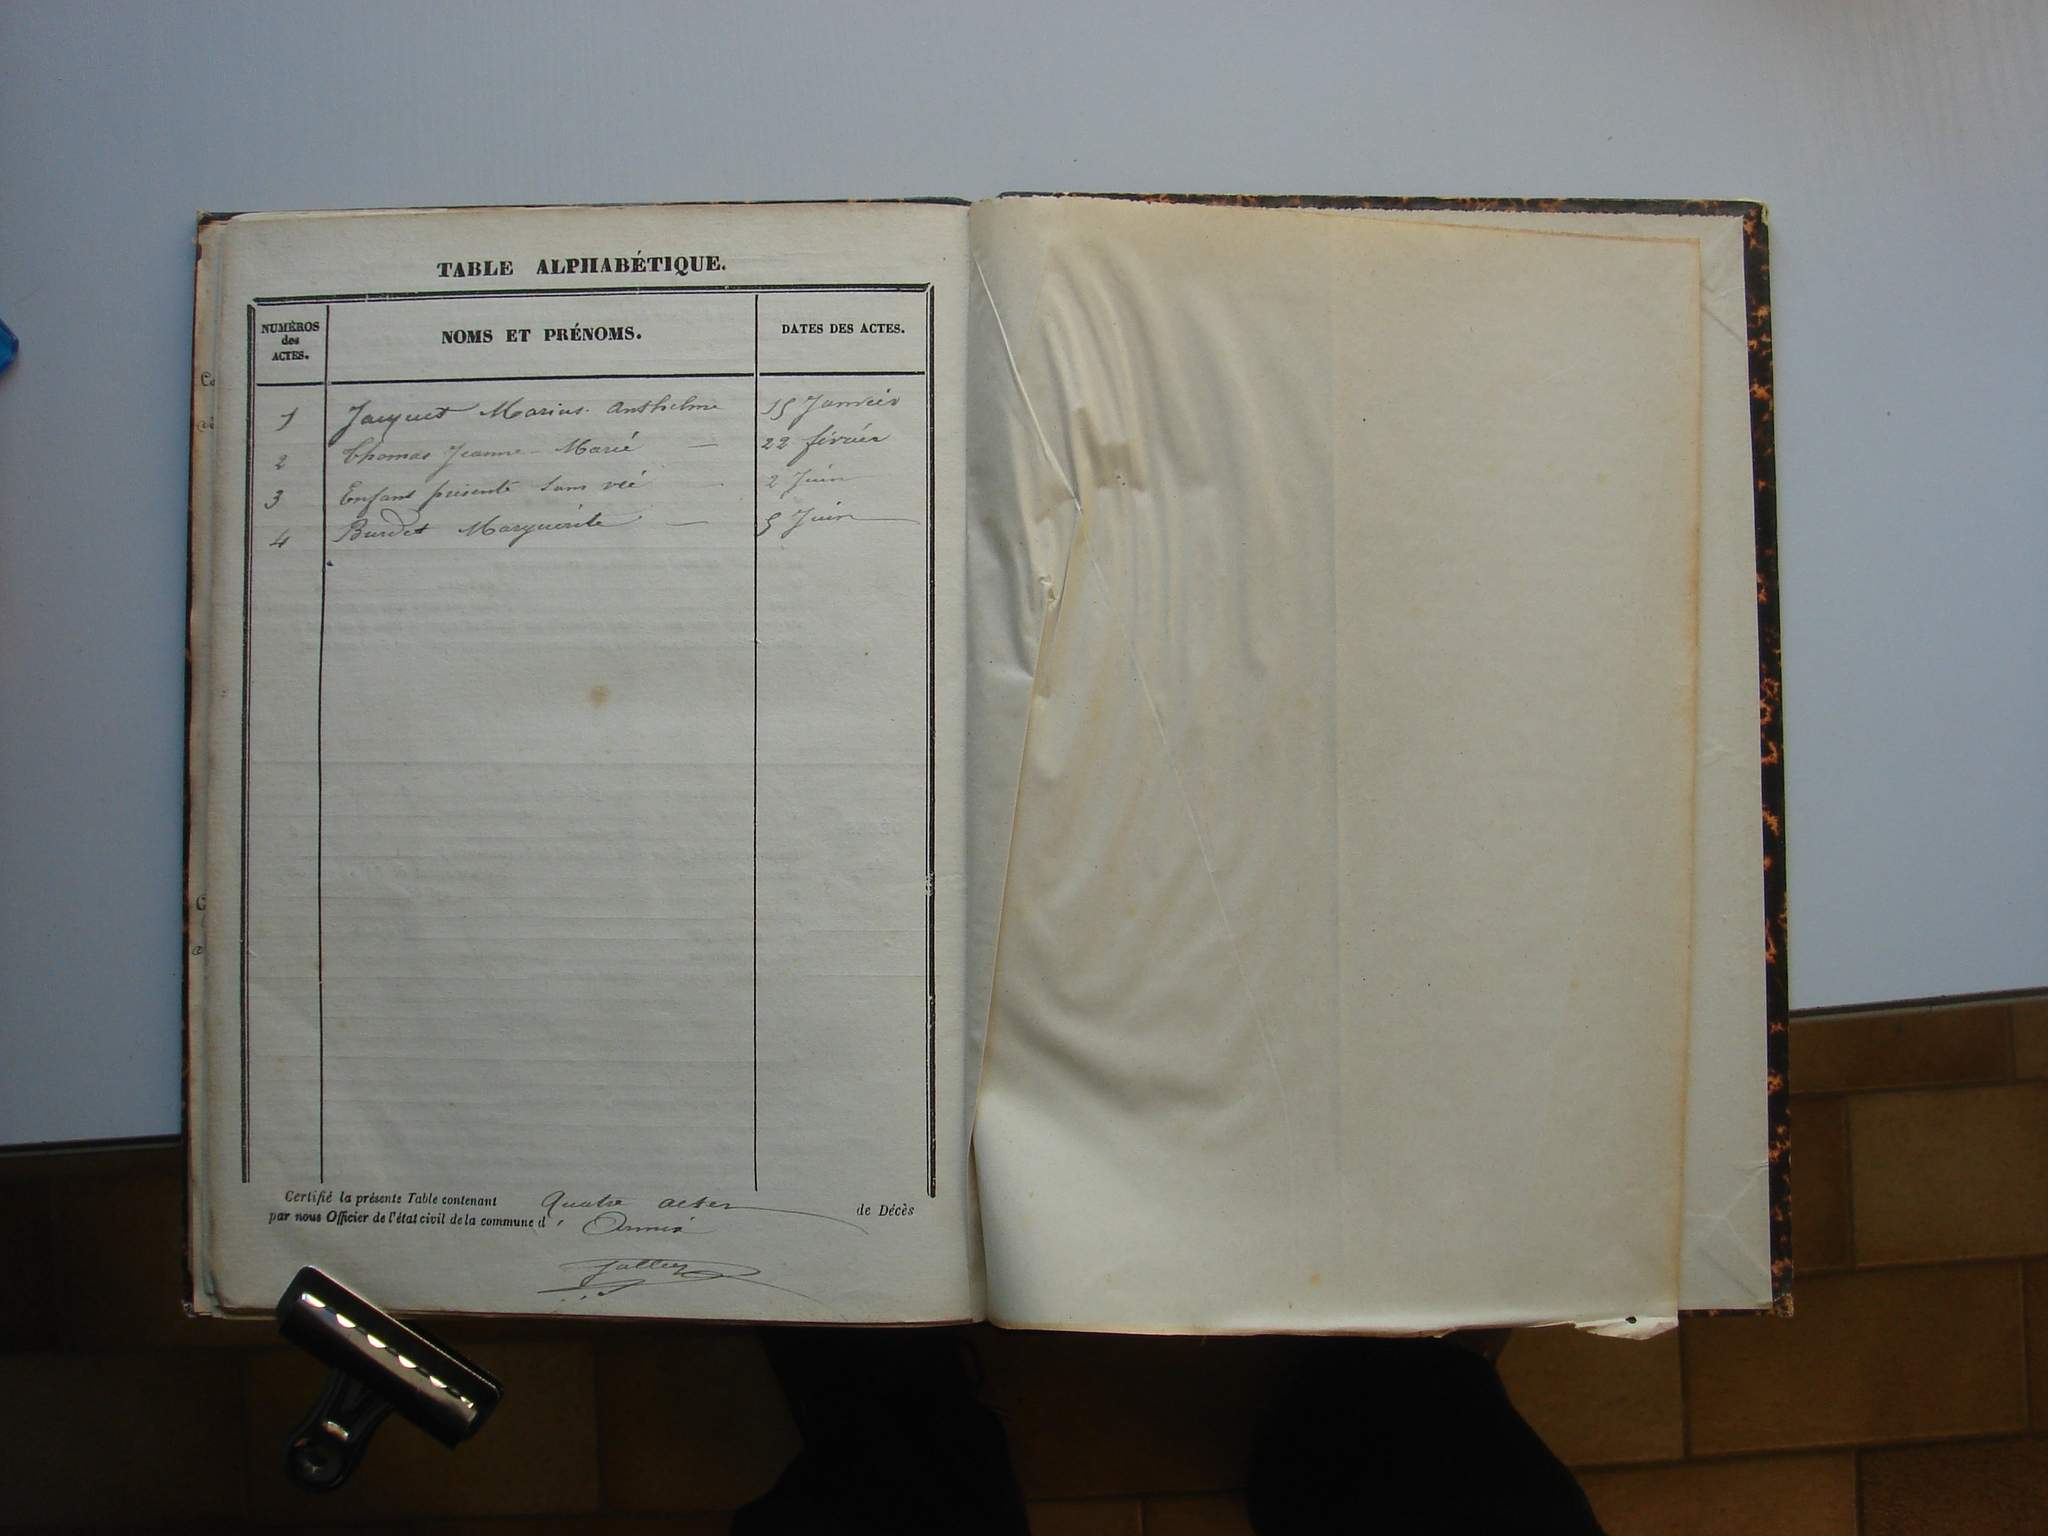 TABLE ALPHABÉTIQUE.
NUMÉROS
des
ACTES.
NOMS ET PRÉNOMS.
DATES DES ACTES.
1 Jacquet Marius Anthelme 15 Janvier
2 Thomas Jeanne-Marie — 22 février
3 Enfant présenté sans vie 2 Juin
4 Burdet Marguerite — 5 Juin
Certifié la présente Table contenant Quatre actes de Décès
par nous Officier de l'état civil de la commune d'